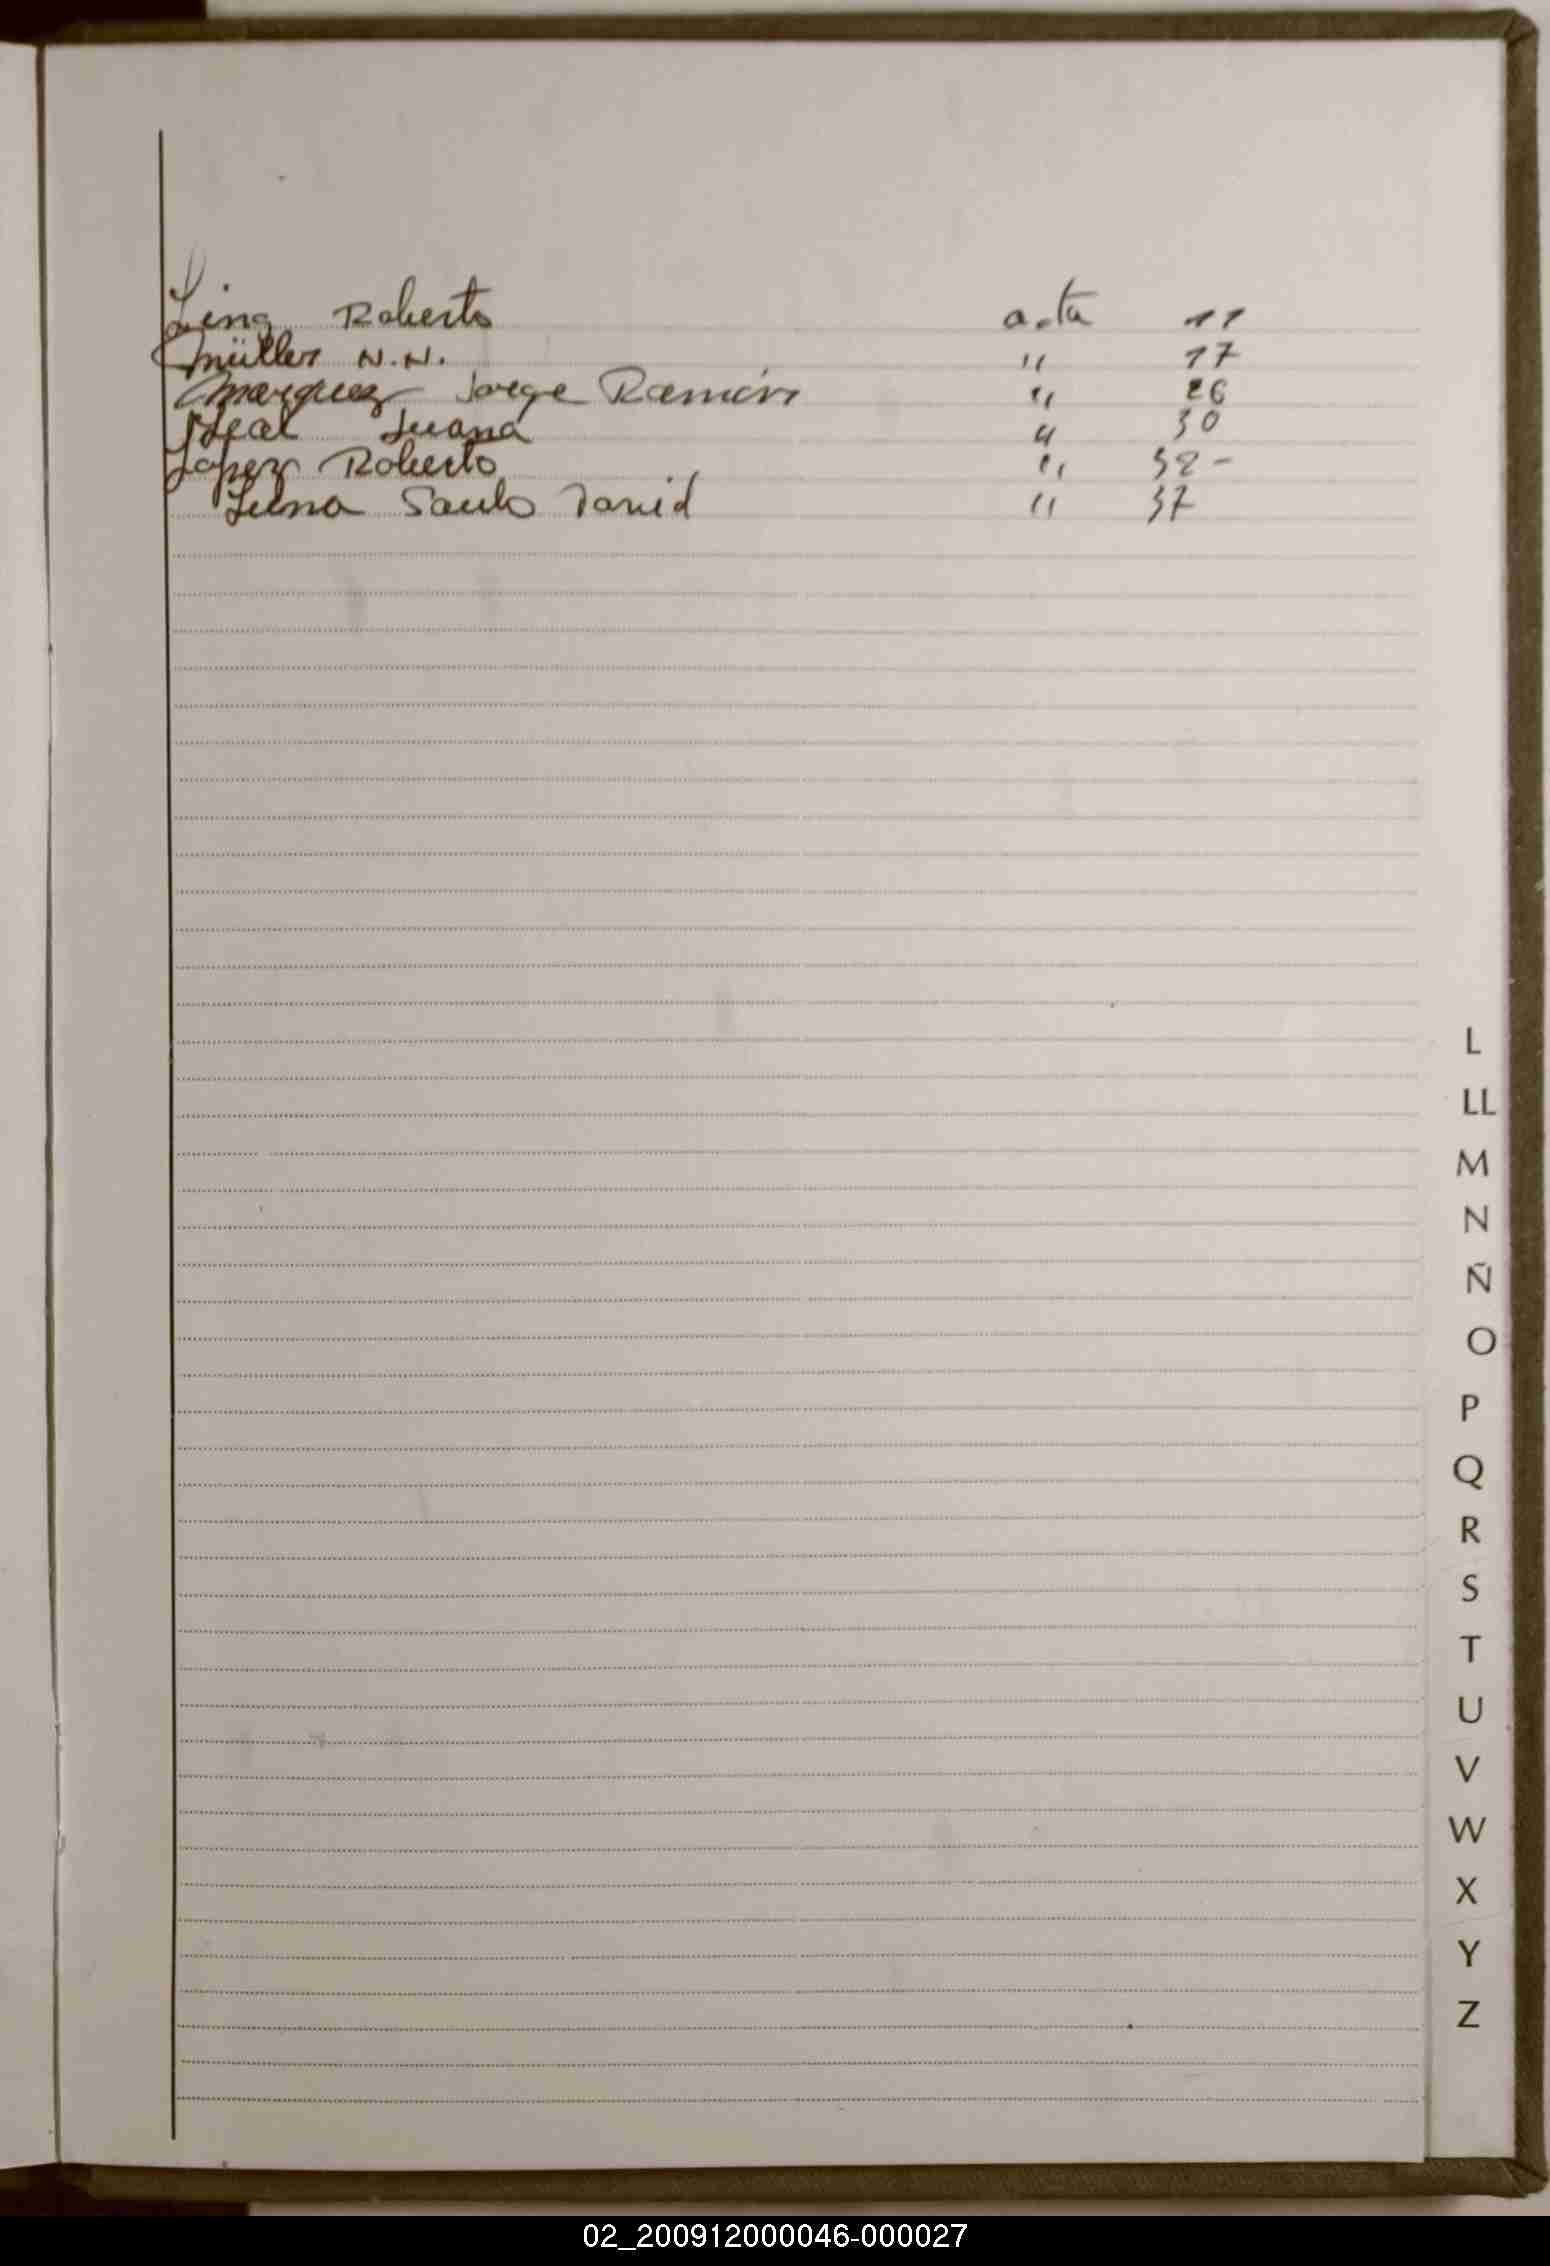 Ling Roberto acta 11
Müller N.N. " 17
Marquez Jorge Ramón " 26
Leal Juana " 30
Lopez Roberto " 32 -
Luna Saulo David " 37
L
LL
M
N
Ñ
O
P
Q
R
S
T
U
V
W
X
Y
Z
02_200912000046-000027